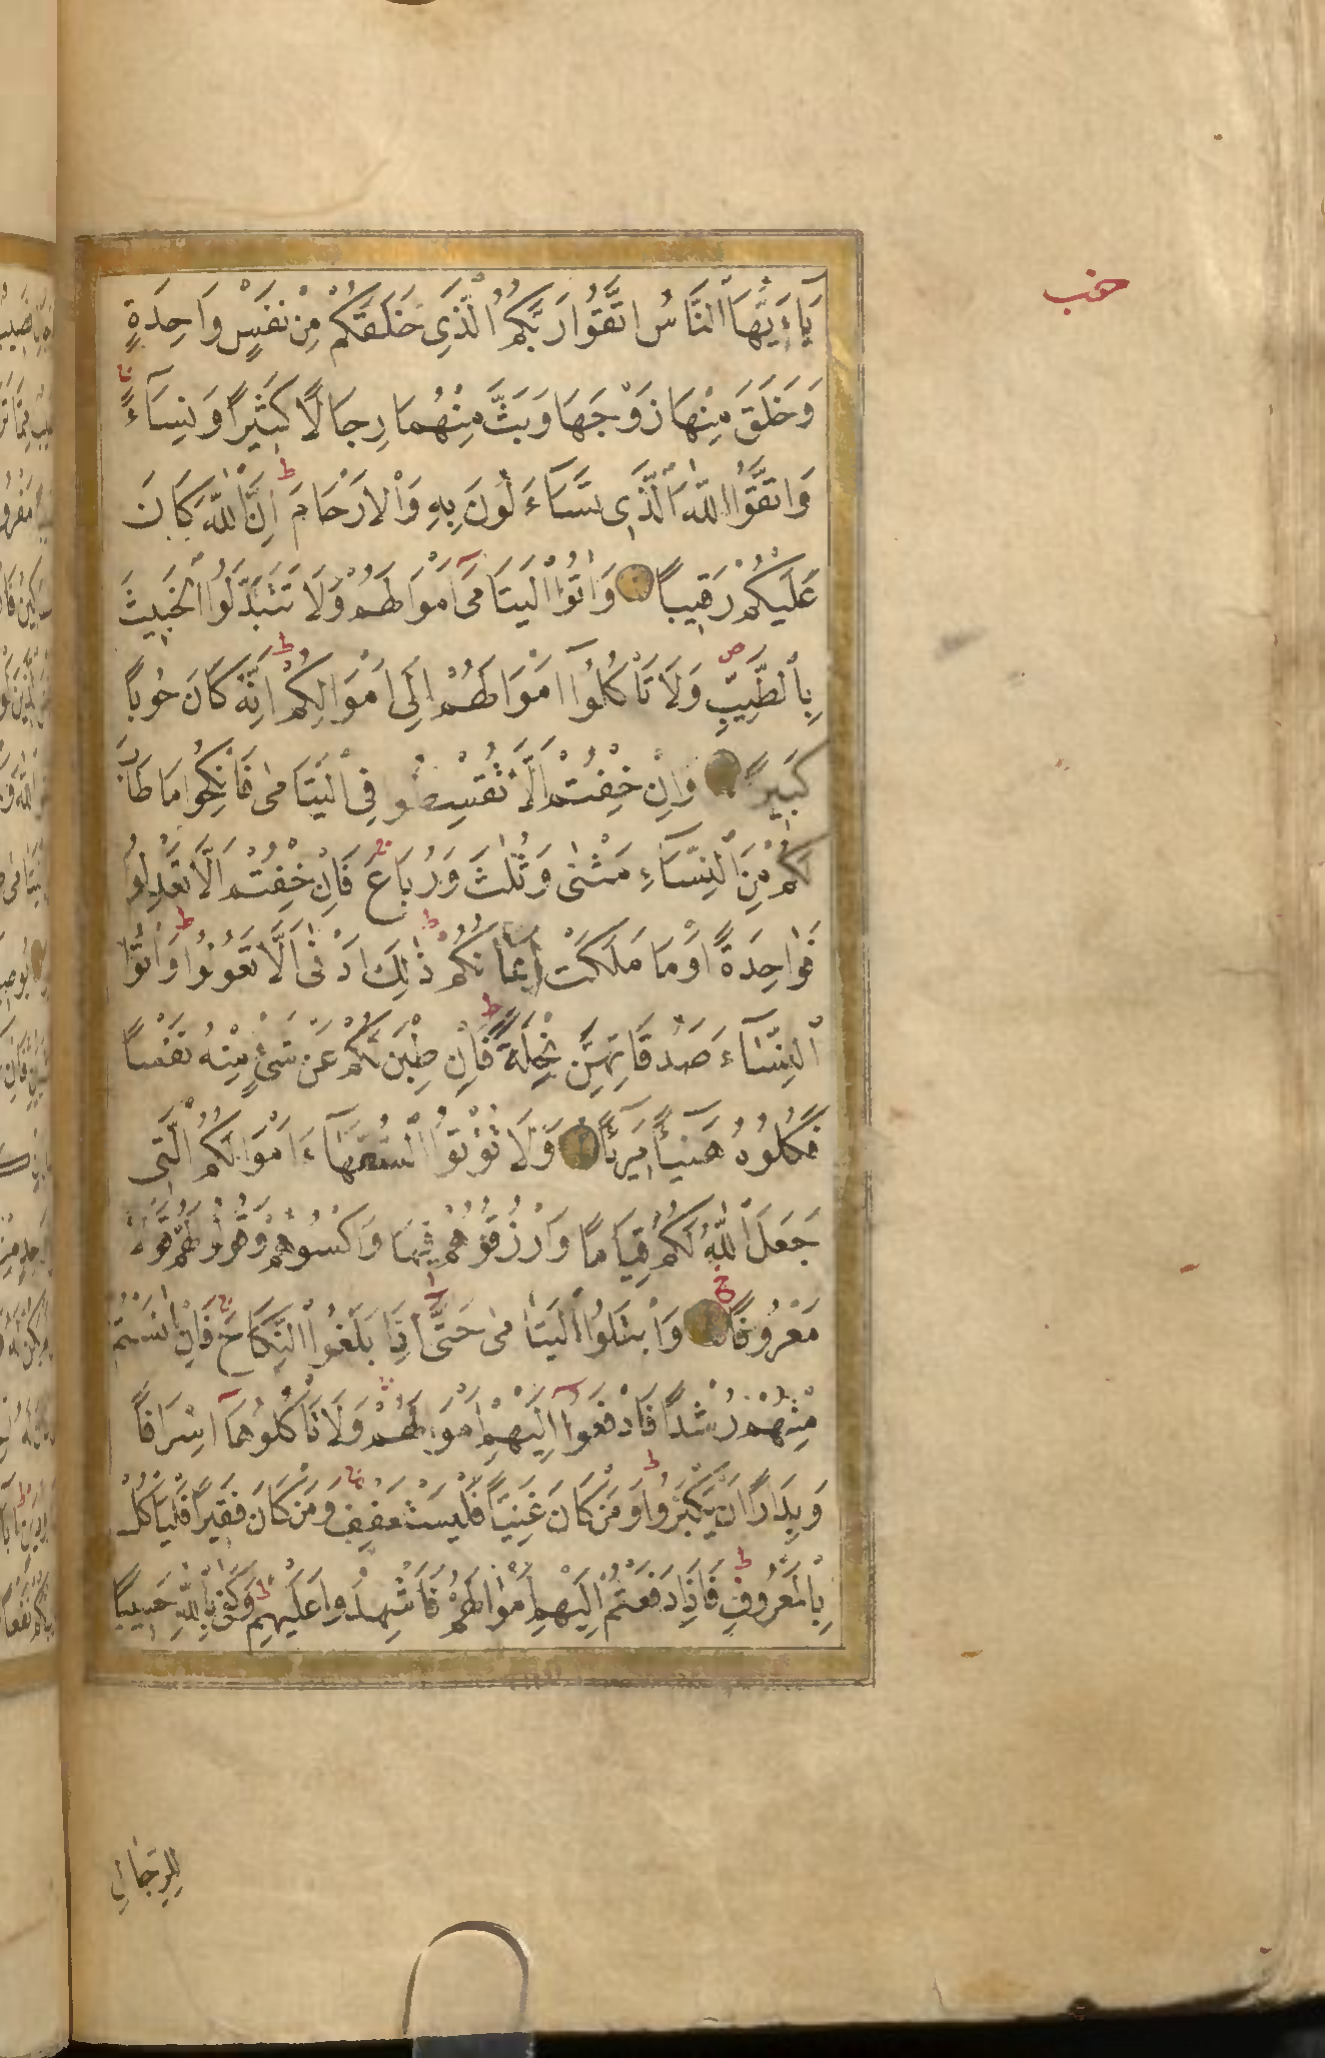 حزب
يَاءَيُّهَا النَّاسُ اتَّقُوا رَبَّكُمُ الَّذِي خَلَقَكُمْ مِنْ نَفْسٍ وَاحِدَةٍ
وَخَلَقَ مِنْهَا زَوْجَهَا وَبَثَّ مِنْهُمَا رِجَالًا كَثِيرًا وَنِسَاءً
وَاتَّقُوا اللّٰهَ الَّذِي تَسَاءَلُونَ بِهِ وَالْاَرْحَامَ ط اِنَّ اللّٰهَ كَانَ
عَلَيْكُمْ رَقِيبًا وَاٰتُوا الْيَتَامَىٓ اَمْوَالَهُمْ وَلَا تَتَبَدَّلُوا الْخَبِيثَ
بِالطَّيِّبِ ص وَلَا تَأْكُلُوٓا اَمْوَالَهُمْ اِلَى اَمْوَالِكُمْ ط اِنَّهُ كَانَ حُوبًا
كَبِيرًا وَاِنْ خِفْتُمْ اَلَّا تُقْسِطُوا فِي الْيَتَامٰى فَانْكِحُوا مَا طَابَ
لَكُمْ مِنَ النِّسَاءِ مَثْنٰى وَثُلٰثَ وَرُبَاعَ فَاِنْ خِفْتُمْ اَلَّا تَعْدِلُوا
فَوَاحِدَةً اَوْ مَا مَلَكَتْ اَيْمَانُكُمْ ط ذٰلِكَ اَدْنٰى اَلَّا تَعُولُوا ط وَاٰتُوا
النِّسَاءَ صَدُقَاتِهِنَّ نِحْلَةً ط فَاِنْ طِبْنَ لَكُمْ عَنْ شَيْءٍ مِنْهُ نَفْسًا
فَكُلُوهُ هَنِيئًا مَرِيئًا وَلَا تُؤْتُوا السُّفَهَاءَ اَمْوَالَكُمُ الَّتِي
جَعَلَ اللّٰهُ لَكُمْ قِيَامًا وَارْزُقُوهُمْ فِيهَا وَاكْسُوهُمْ وَقُولُوا لَهُمْ قَوْلًا
مَعْرُوفًا وَابْتَلُوا الْيَتَامٰى حَتَّىٓ اِذَا بَلَغُوا النِّكَاحَ ج فَاِنْ اٰنَسْتُمْ
مِنْهُمْ رُشْدًا فَادْفَعُوٓا اِلَيْهِمْ اَمْوَالَهُمْ وَلَا تَأْكُلُوهَآ اِسْرَافًا
وَبِدَارًا اَنْ يَكْبَرُوا ط وَمَنْ كَانَ غَنِيًّا فَلْيَسْتَعْفِفْ وَمَنْ كَانَ فَقِيرًا فَلْيَأْكُلْ
بِالْمَعْرُوفِ ط فَاِذَا دَفَعْتُمْ اِلَيْهِمْ اَمْوَالَهُمْ فَاَشْهِدُوا عَلَيْهِمْ ط وَكَفٰى بِاللّٰهِ حَسِيبًا
لِلرِّجَالِ